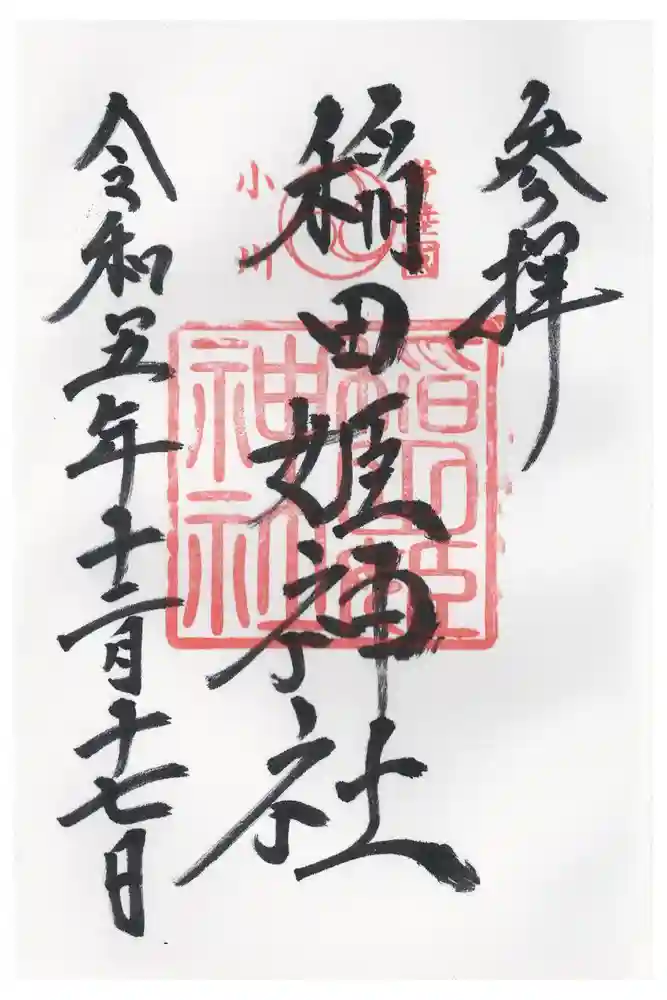 参拝
常陸国
小川
稲田姫神社
稲田姫
神社
令和五年十二月十七日